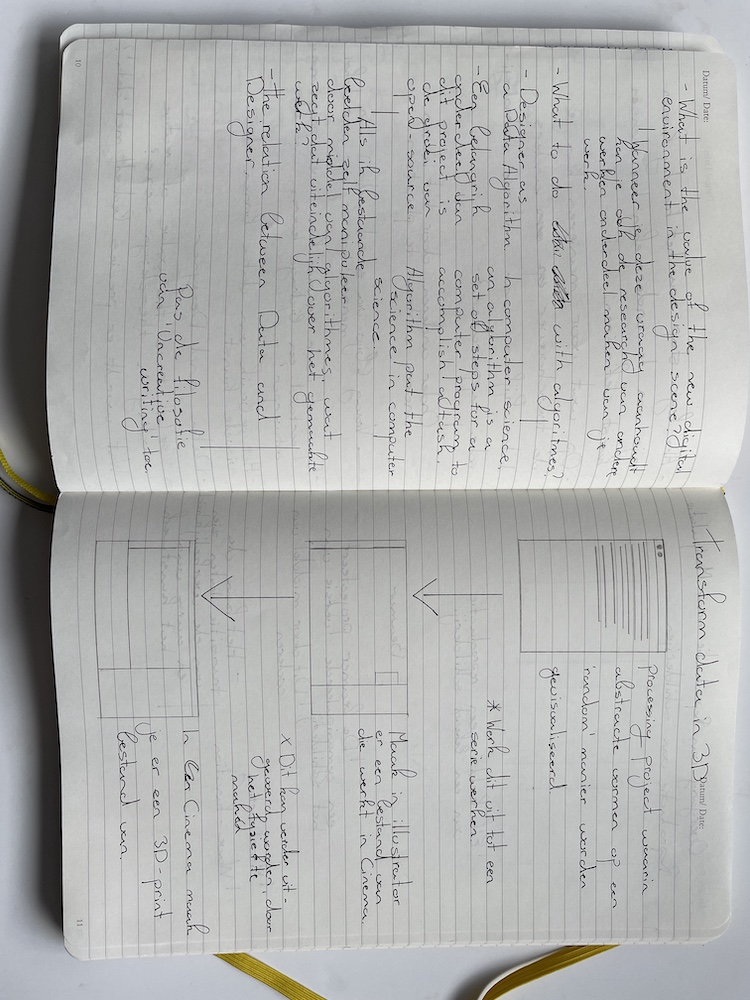 Datum/ Date:
- What is the value of the new digital
environment in the design scene?
Wanneer je deze vraag aanhoudt
kan je ook de research van andere
werken onderdeel maken van je
werk.
- What to do with algoritmes?
- Designer as
a Data Algorithm.
- Een belangrijk
onderdeel van
dit project is
de groei van
open-source
In computer science,
an algorithm is a
set of steps for a
computer program to
accomplish a task.
Algorithm put the
science in computer
science.
Als ik bestaande
beelden zelf manipuleer
door middel van algorithmes, wat
zegt dat uiteindelijk over het gemaakte
werk?
- The relation between Data and
Designer.
Pas de filosofie
van 'Uncreative
writing' toe.
10
Transform data in 3D
Datum/ Date:
processing project waarin
abstracte vormen op een
'random' manier worden
gevisualiseerd.
* Werk dit uit tot een
serie werken.
Maak in illustrator
er een bestand van
die werkt in Cinema.
x Dit kan verder uit-
gevoerd worden, door
het fysiek te
maken
In Cinema maak
je er een 3D-print
bestand van.
11